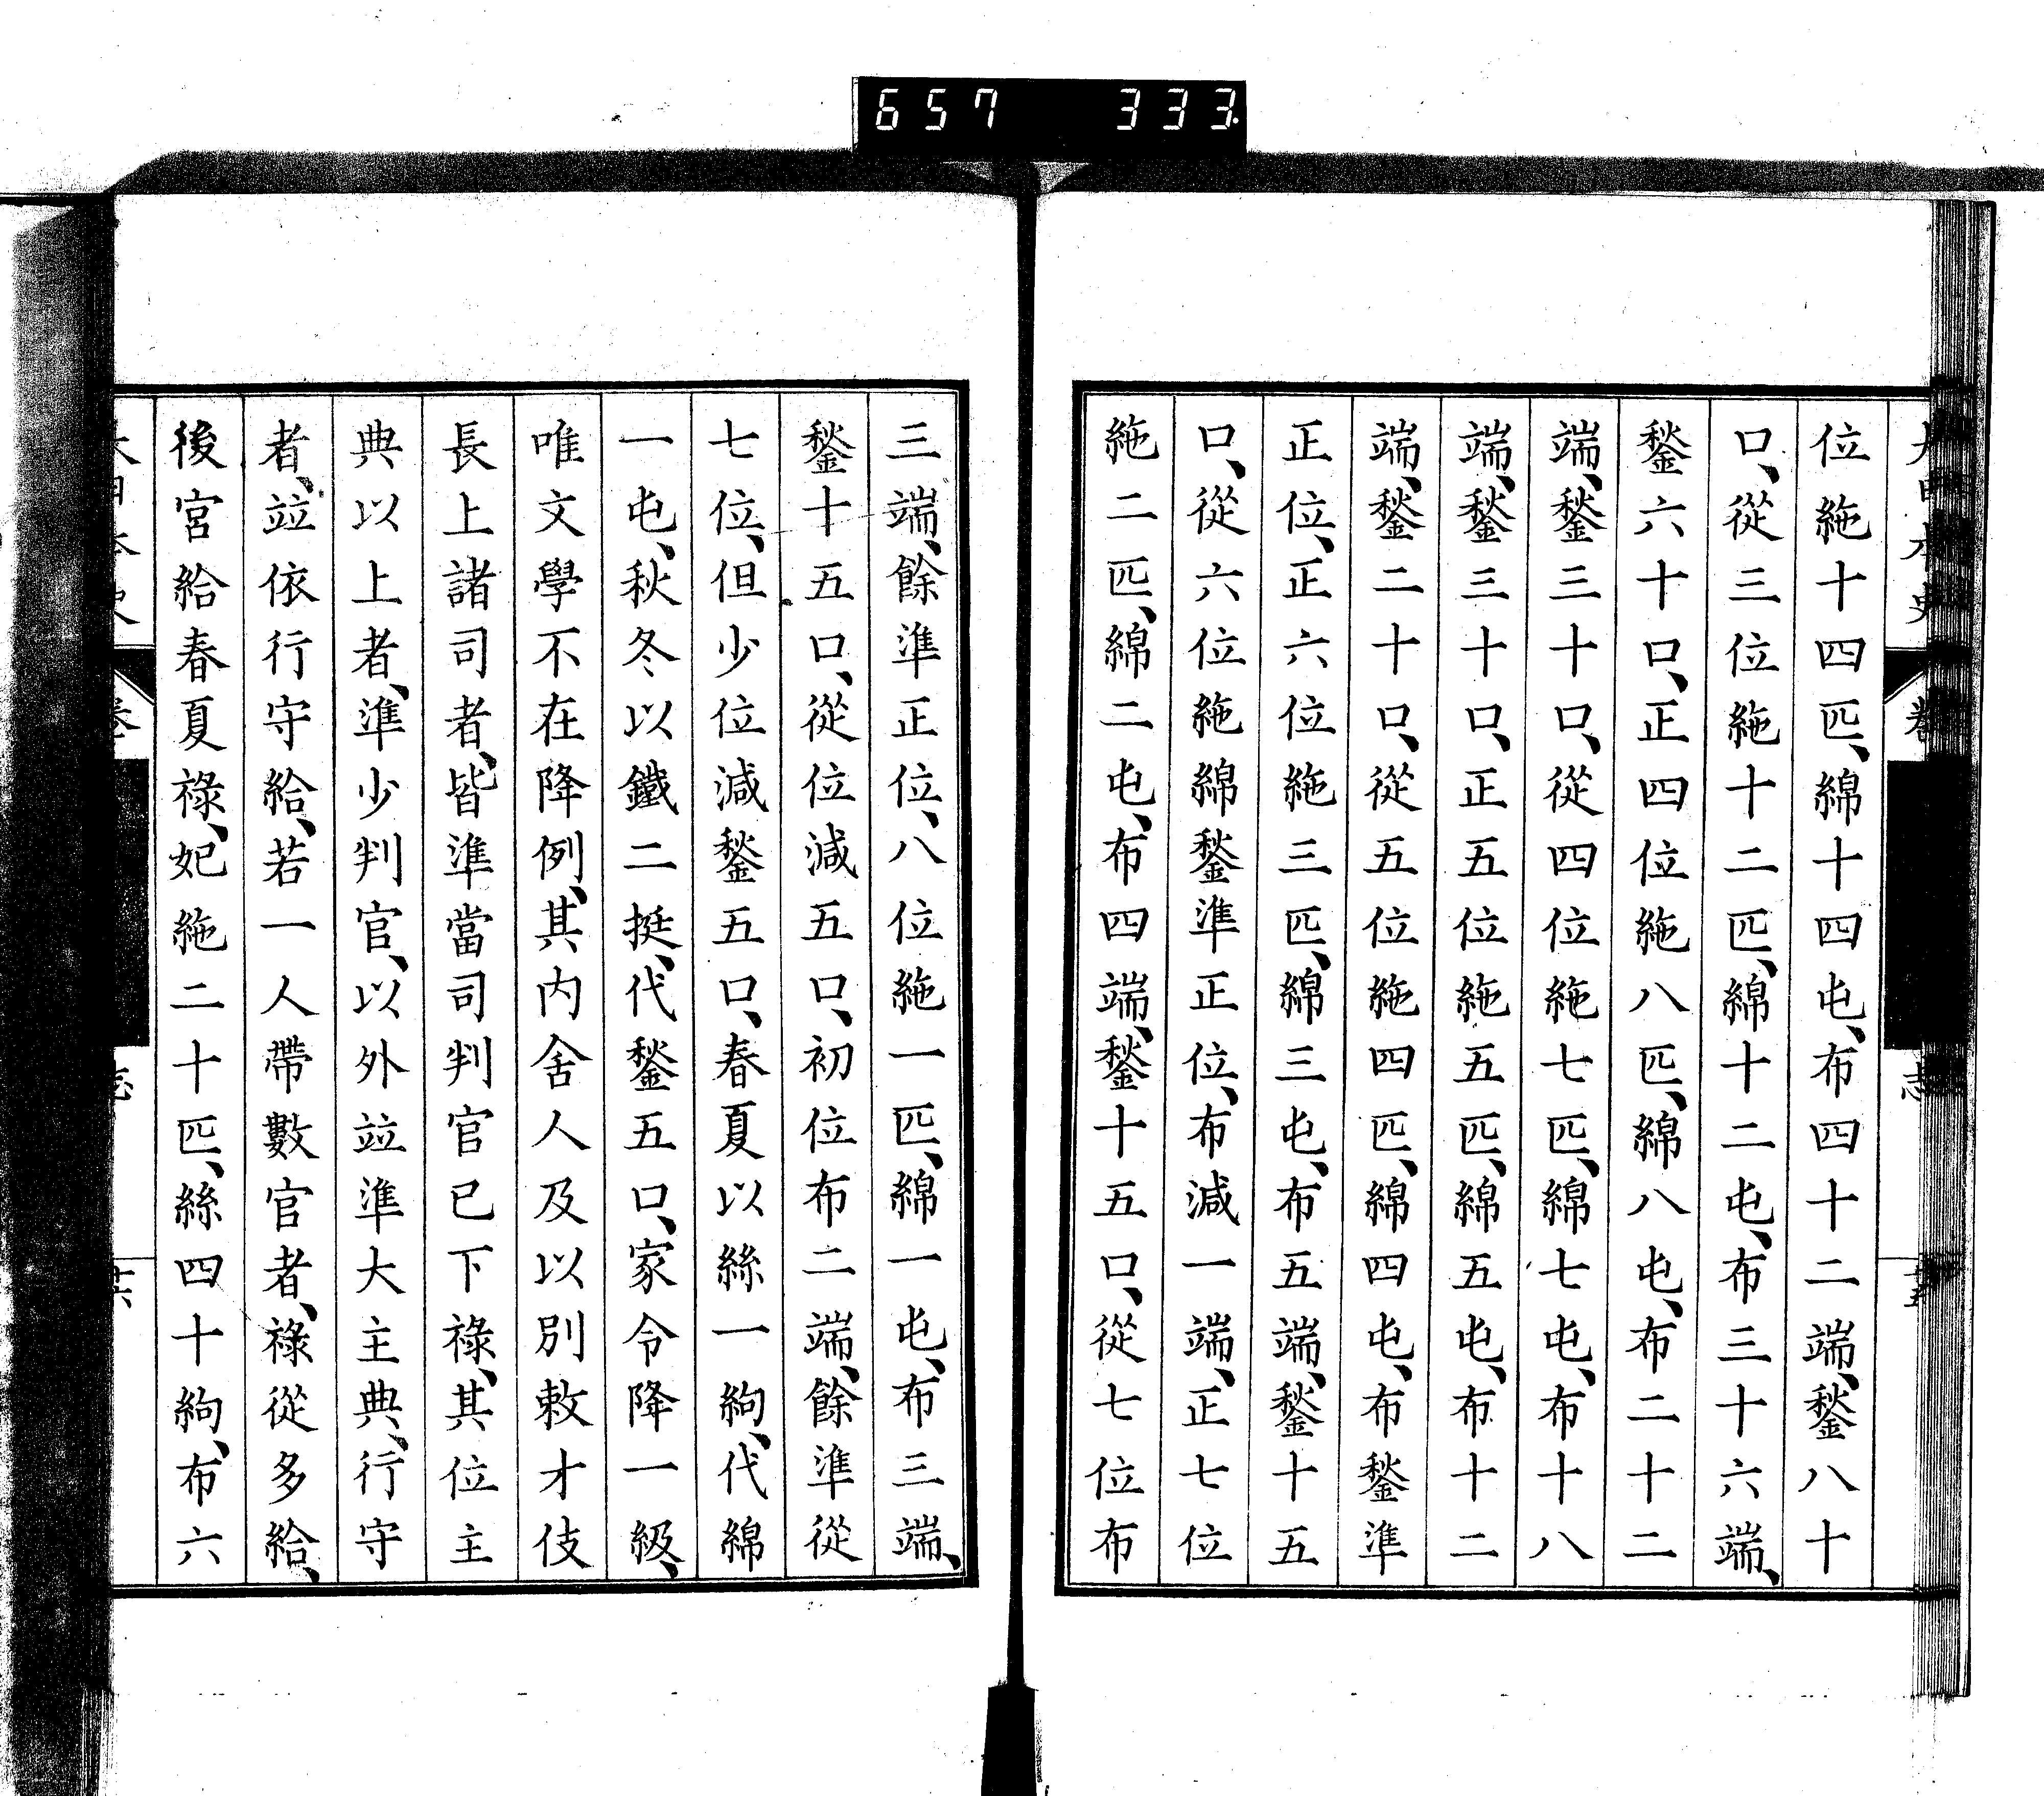 657 333
大日本史 卷 志
位絁十四匹、綿十四屯、布四十二端、鍫八十
口、從三位絁十二匹、綿十二屯、布三十六端、
鍫六十口、正四位絁八匹、綿八屯、布二十二
端、鍫三十口、從四位絁七匹、綿七屯、布十八
端、鍫三十口、正五位絁五匹、綿五屯、布十二
端、鍫二十口、從五位絁四匹、綿四屯、布鍫準
正位、正六位絁三匹、綿三屯、布五端、鍫十五
口、從六位絁綿鍫準正位、布減一端、正七位
絁二匹、綿二屯、布四端、鍫十五口、從七位布
三端、餘準正位、八位絁一匹、綿一屯、布三端、
鍫十五口、從位減五口、初位布二端、餘準從
七位、但少位減鍫五口、春夏以絲一絇、代綿
一屯、秋冬以鐵二挺、代鍫五口、家令降一級、
唯文學不在降例、其内舍人及以別敕才伎
長上諸司者、皆準當司判官已下祿、其位主
典以上者、準少判官、以外竝準大主典、行守
者、竝依行守給、若一人帶數官者、祿從多給、
後宮給春夏祿、妃絁二十匹、絲四十絇、布六
大日本史 卷 志 十六